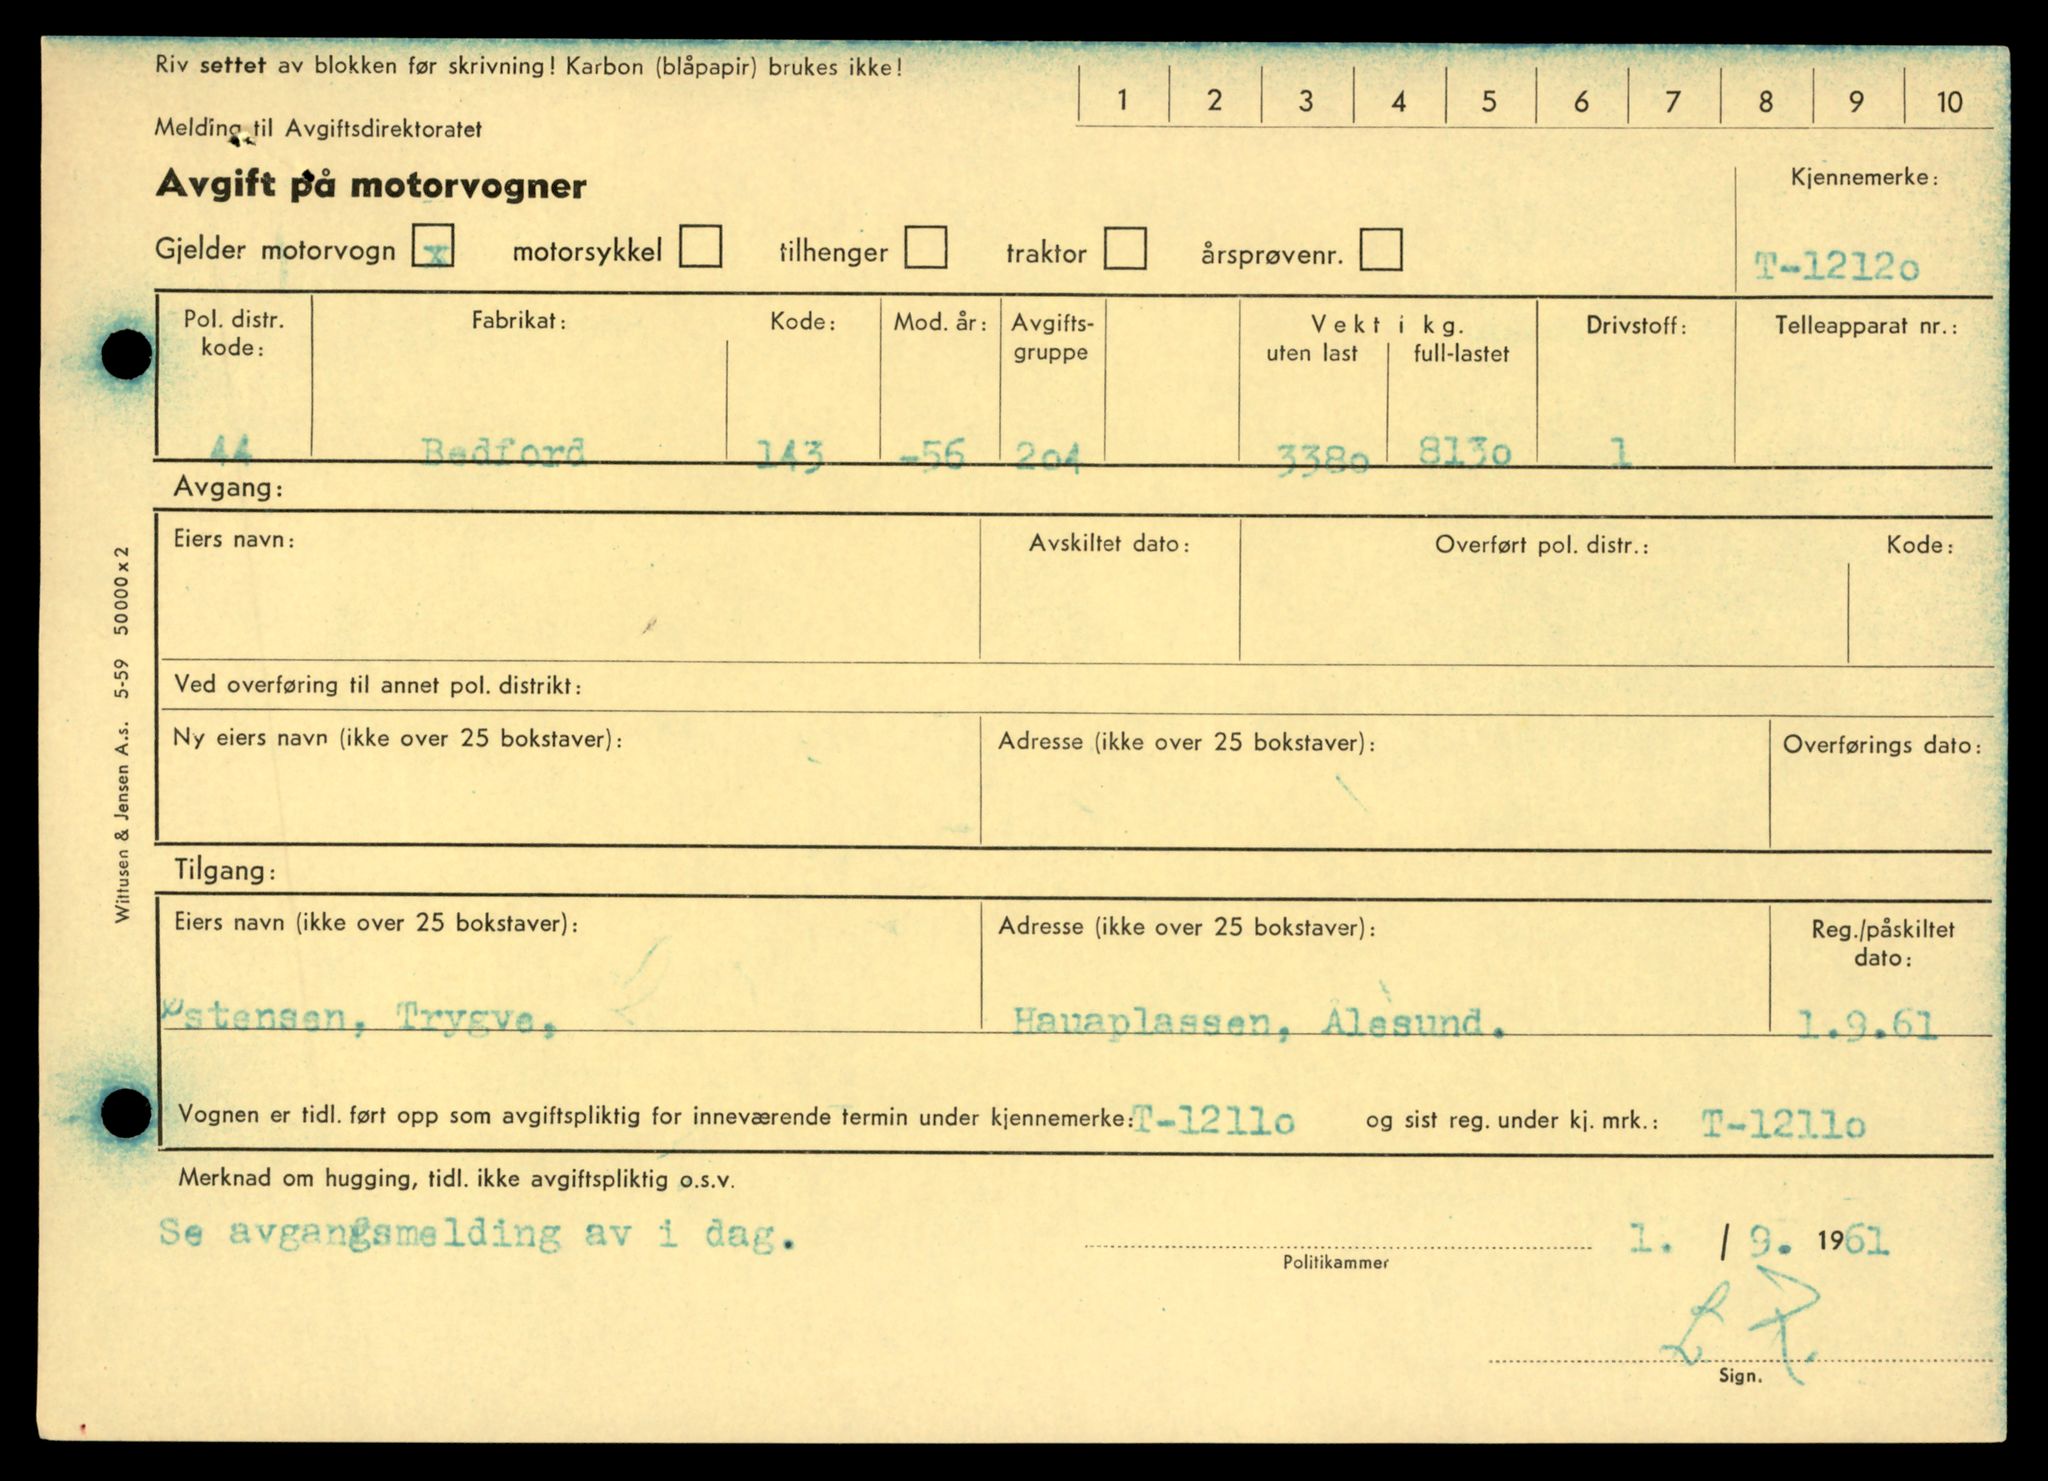 Riv settet av blokken før skrivning! Karbon (blåpapir) brukes ikke!
1 2 3 4 5 6 7 8 9 10
Melding til Avgiftsdirektoratet
Avgift på motorvogner
Kjennemerke:
Gjelder motorvogn x motorsykkel tilhenger traktor årsprøvenr.
T-1212o
Pol. distr. kode: Fabrikat: Kode: Mod. år: Avgifts-gruppe Vekt i kg. uten last full-lastet Drivstoff: Telleapparat nr.:
44 Bedford 143 -56 2o4 338o 813o 1
Avgang:
Eiers navn: Avskiltet dato: Overført pol. distr.: Kode:
Ved overføring til annet pol. distrikt:
Ny eiers navn (ikke over 25 bokstaver): Adresse (ikke over 25 bokstaver): Overførings dato:
Tilgang:
Eiers navn (ikke over 25 bokstaver): Adresse (ikke over 25 bokstaver): Reg./påskiltet dato:
Østensen, Trygve, Hauaplassen, Ålesund. 1.9.61
Vognen er tidl. ført opp som avgiftspliktig for inneværende termin under kjennemerke: T-1211o og sist reg. under kj. mrk.: T-1211o
Merknad om hugging, tidl. ikke avgiftspliktig o.s.v.
Se avgangsmelding av i dag.
1. / 9. 1961
Politikammer
Sign.
Wittusen & Jensen A.s. 5-59 50000 x 2